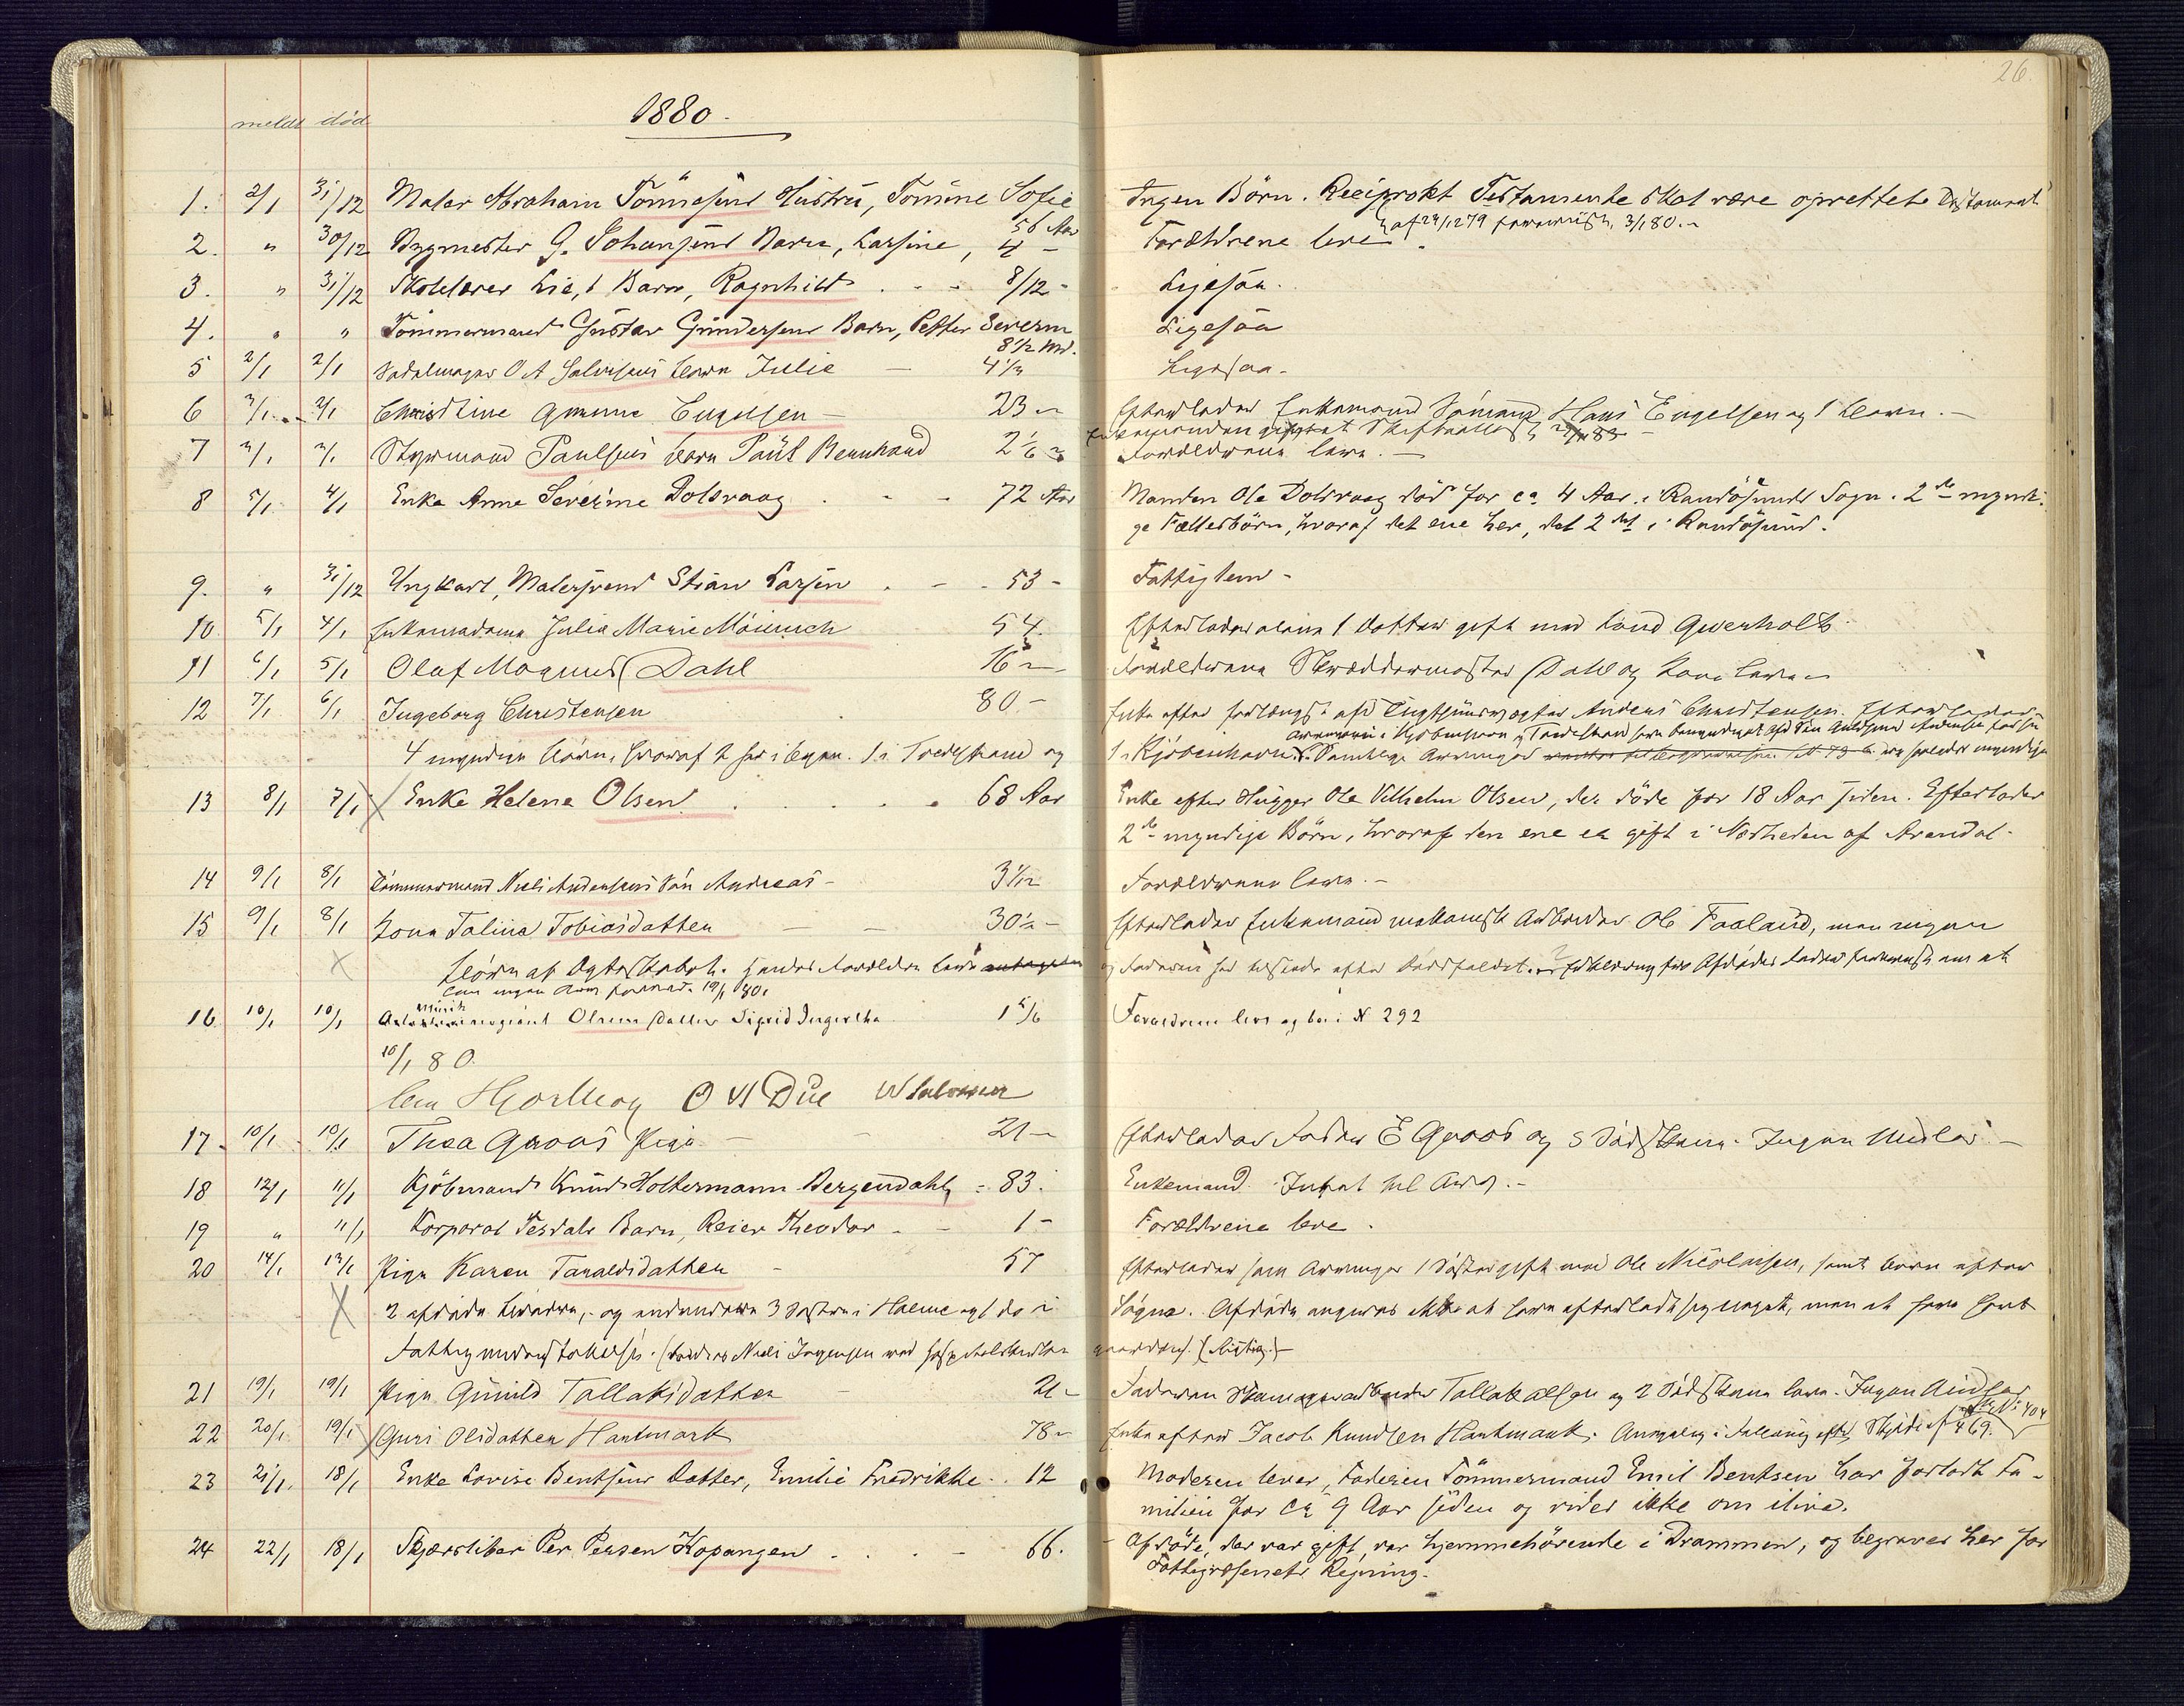 26.
meldt død
1880.
1. 2/1 31/12 Maler Abraham Tönnesens Hustru, Tomine Sofie 56 Aar Ingen Börn. Reciprokt Testamente skal være oprettet. Testament
af 29/12 79 3/1 80.
2. " 30/12 Bygmester G. Johansens Barn, Larsine, 4 - Forældrene leve.
3. " 31/12 Skolelærer Lie,s Barn, Ragnhild - 8/12 - Ligesaa.
4. " " Tömmermand Gustav Gundersens Barn, Petter Severin 8 1/2 Md. Ligesaa
5 2/1 2/1 Sadelmager O A Salvesens barn Julie - 4 1/2 Ligesaa.
6 3/1 2/1 Christine Engelsen - 23 - Efterlader Enkemand Sömand Hans Engelsen og 1 barn. -
7 3/1 3/1 Styrmand Paulsens barn Paul Bernhard 2 1/6 Forældrene leve. -
8 5/1 4/1 Enke Anne Severine Dolsvaag - 72 Aar Manden Ole Dolsvaag död for ca 4 Aar i Randösunds Sogn. 2de myndi-
ge Fællesbörn, hvoraf det ene her, det 2det i Randösund.
9. " 31/12 Ungkarl, Malersvend Stian Larsen - 53 - Fattiglem -
10 5/1 4/1 Enkemadame Julia Marie Möinich 54. Efterlader alene 1 Datter gift med Gverholt
11 6/1 5/1 Olaf Magnus Dahl 16 - Forældrene Skræddermester Dahl og Kone leve
12 7/1 6/1 Ingeborg Christensen 80 - Enke efter forlængst afd Tugthusvogter Anders Christensen. Efterlader
4 myndige börn, hvoraf 2 her i byen. 1 i Tvedestrand og 1 i Kjöbenhavn.
13 8/1 7/1 Enke Helene Olsen 68 Aar Enke efter Hugger Ole Vilhelm Olsen, der döde for 18 Aar siden. Efterlader
2de myndige Börn, hvoraf den ene er gift i Nærheden af Arendal.
14 9/1 8/1 Tömmermand Niels Andersens Sön Andreas - 3 1/12 Forældrene leve. -
15 9/1 8/1 Kone Taline Tobiasdatter - - 30 1/2 - Efterlader Enkemand mekanisk Arbeider Ole Faaland, men ingen
börn af Ægteskabet. Hendes Forældre leve og Faderen
19/1 80.
16 10/1 10/1 Olsens Datter Sigrid Ingertha 1 5/6 Forældrene leve og bor i N 292
10/1 80.
O H Due
17 - 10/1 10/1 Thea Groos Pige - - 21 - Efterlader Fader E Groos og Södskende. Ingen Midler -
18 12/1 11/1 Kjöbmand Knud Holtermann Bergendahl - 83. Enkemand. Intet til Arv. -
19 " 11/1 Korporal Tesdals Barn, Reier Theodor - - 1 - Forældrene leve.
20 14/1 13/1 Pige Karen Taraldsdatter - 57 Efterlader som Arvinger 1 Söster gift med Ole Nicolaisen, samt börn efter
2 afdöde Brödre, og endvidere 3 Söstre i Halme og 1 do i Sögne. Afdöde angives ikke at have efterladt sig noget, men at have havt
Fattigunderstöttelse.
21 19/1 19/1 Pige Gunild Tallaksdatter - 21 - Faderen Tallak Olsen og 2 Södskende leve. Ingen Midler
22 20/1 19/1 Guri Olsdatter Hantmark 78 - Enke efter Jacob Knudsen Hantmark. Skjöde 469.
N: 404
23 21/1 18/1 Enke Lovise Bentsens Datter, Emilie Fredrikke - 12 Moderen lever, Faderen Tömmermand Emil Bentsen har forladt Fa-
milien for ca 9 Aar siden og vides ikke om ilive.
24 22/1 18/1 Skjærsliber Per Persen Kopangen - 66. - Afdöde, der var gift, var hjemmehörende i Drammen, og begraves her for
Fattigvæsenets Regning.